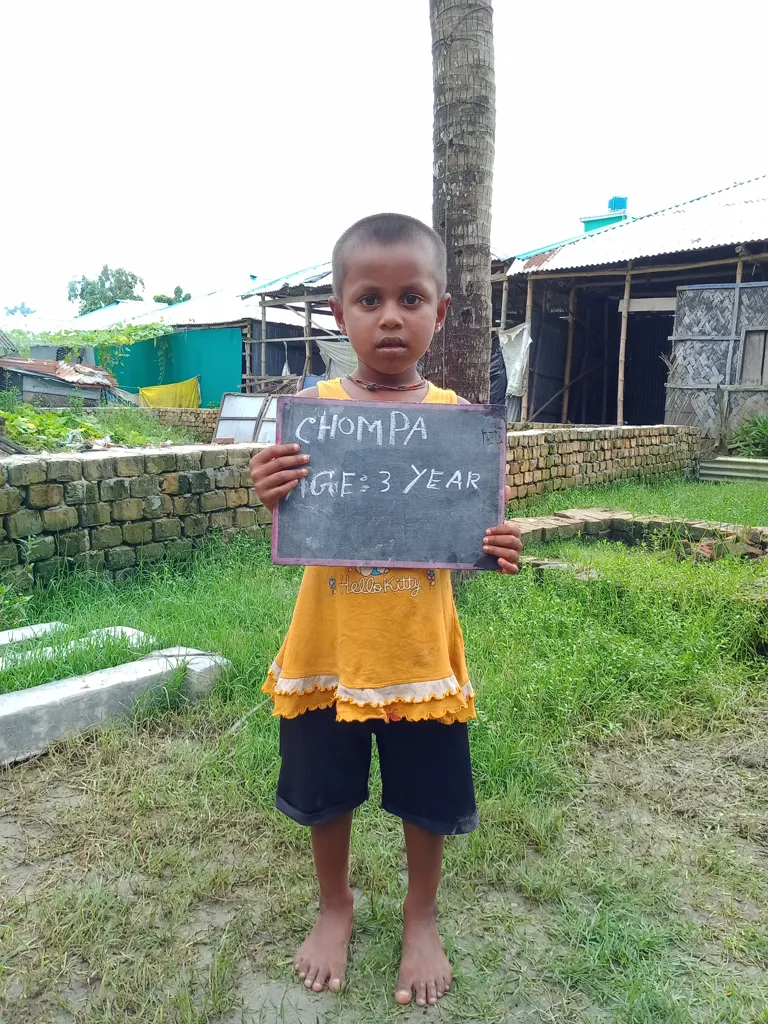 CHOMPA
AGE: 3 YEAR
Hello Kitty